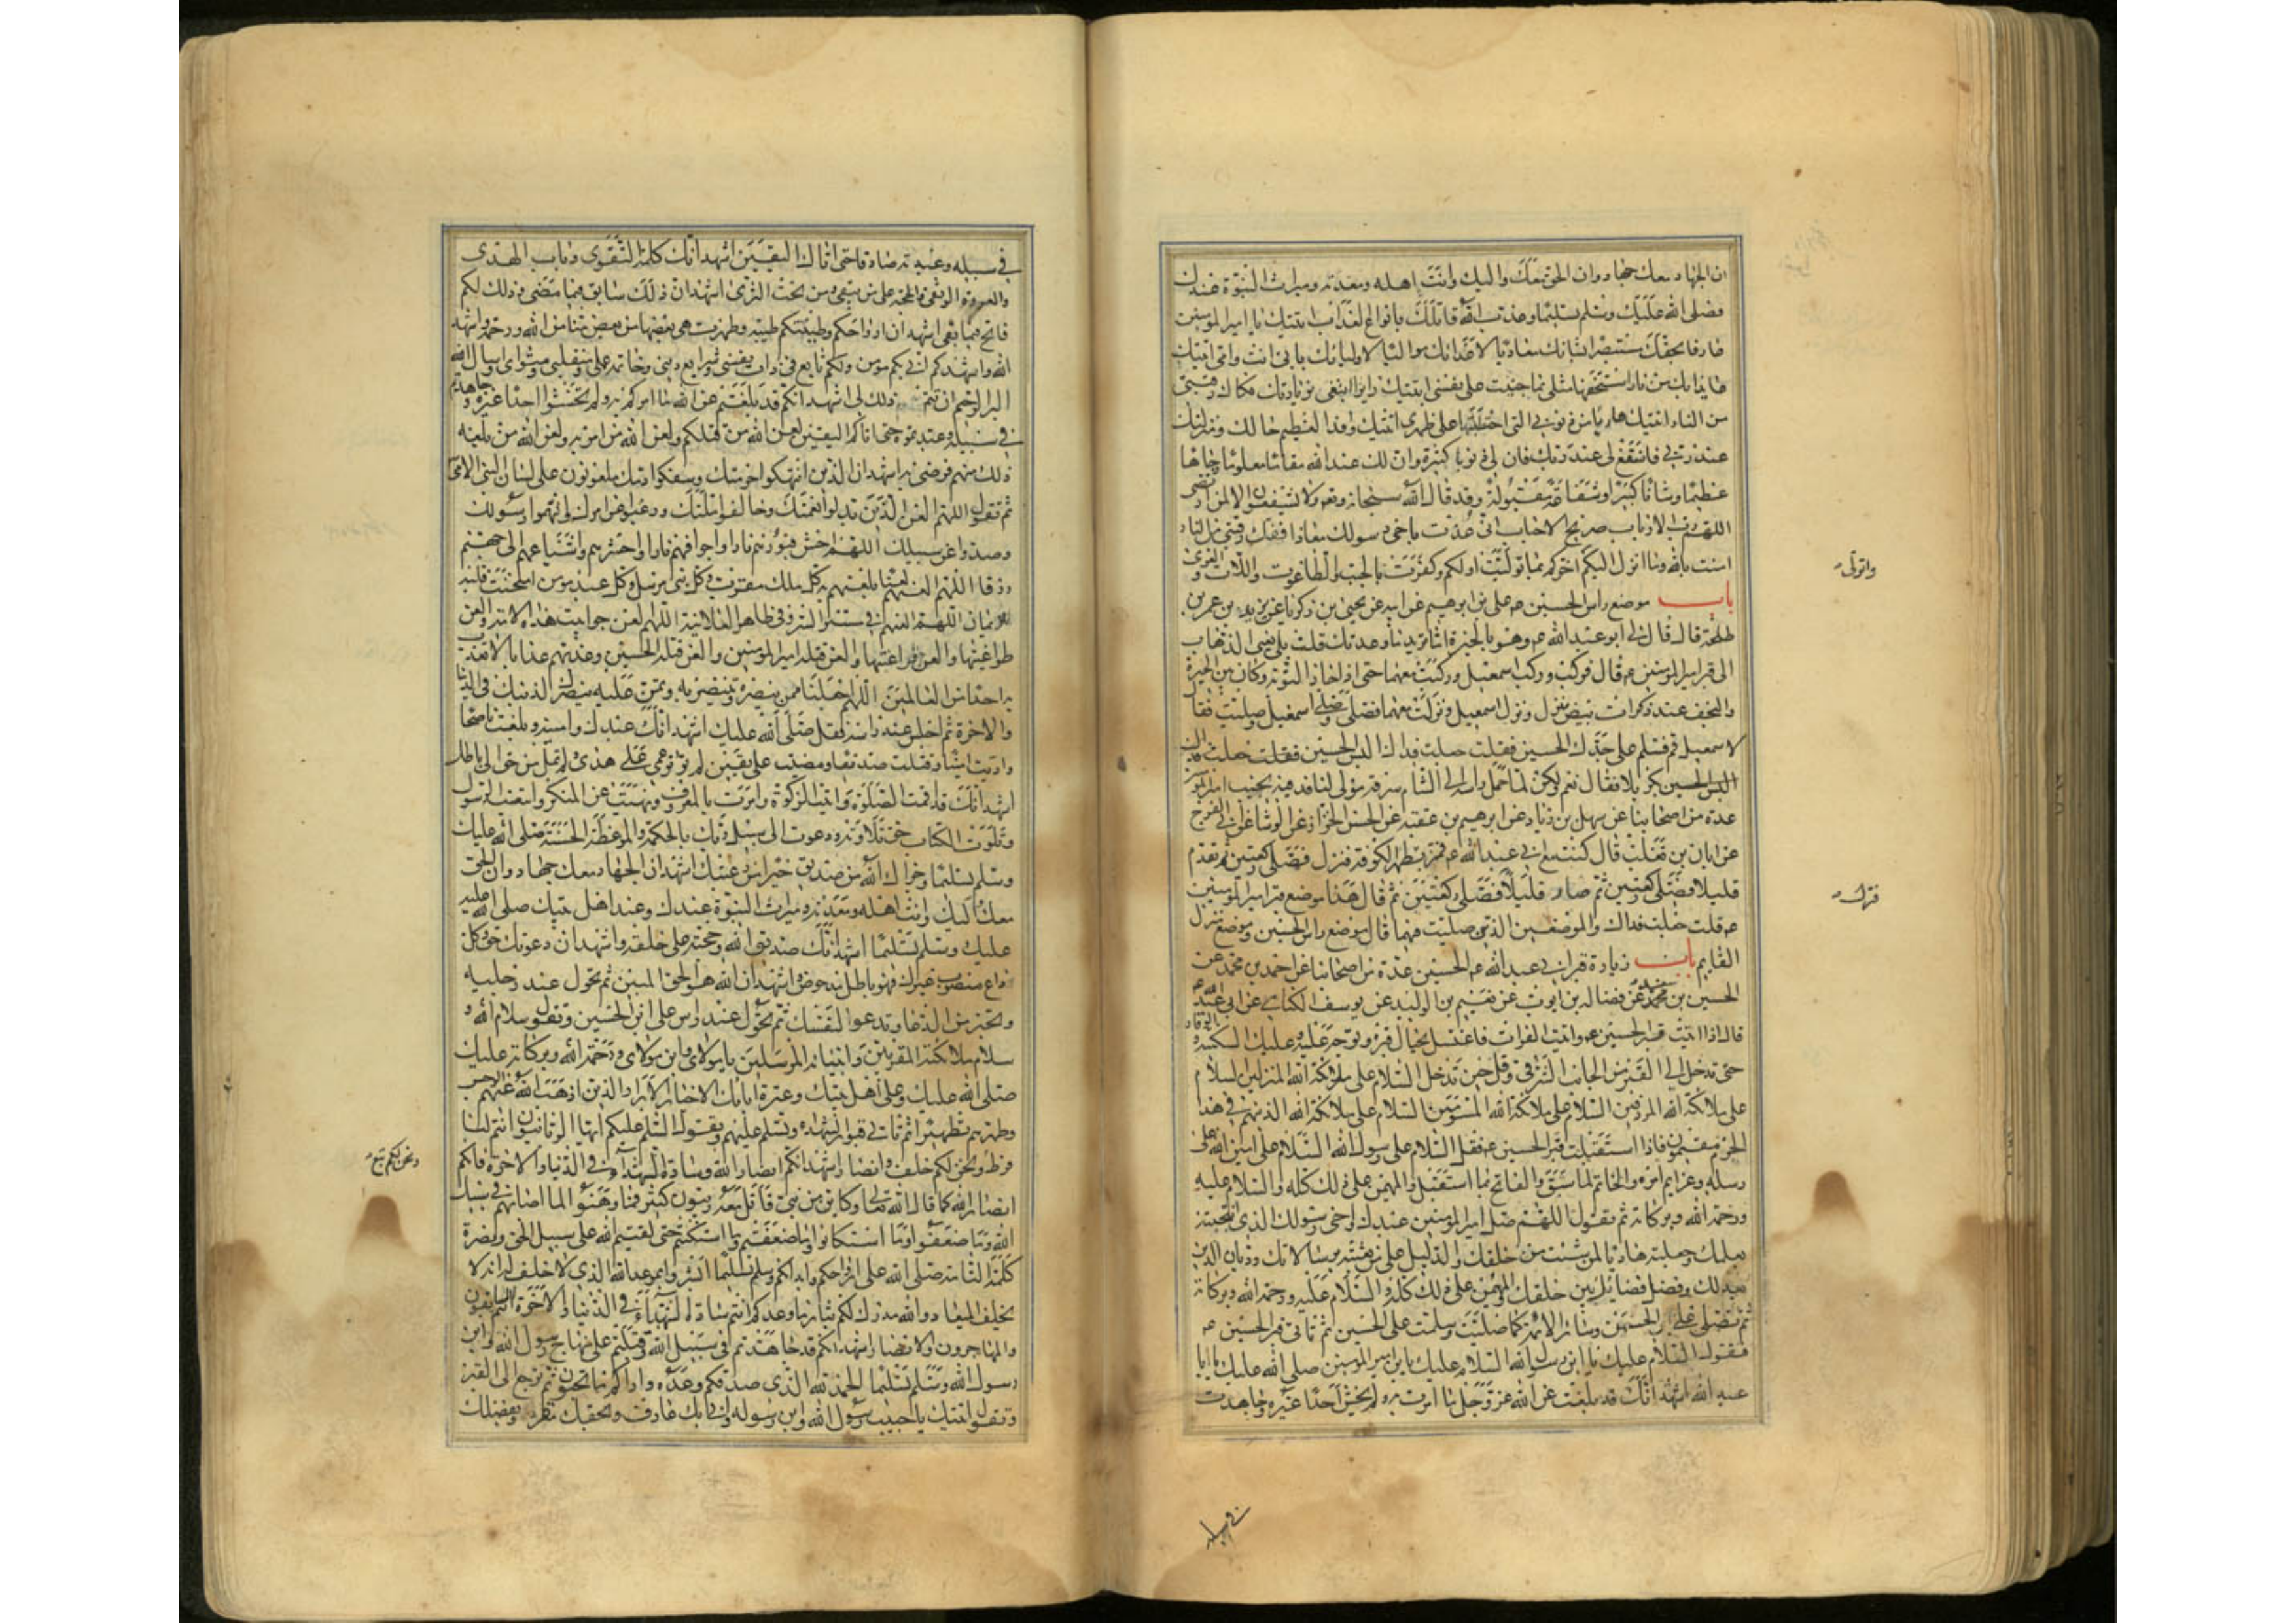 ان الجهاد معك جهاد وان الحق معك واليك وانت اهله ومعدنه وميراث النبوة عندك
فصلى الله عليك وسلم تسليما وعذب الله قاتلك بانواع العذاب اتيتك يا امير المؤمنين
عارفا بحقك مستبصرا بشانك معاديا لاعدائك مواليا لاوليائك بابى انت وامى اتيتك
عائذا بك من نار استحقها مثلى بما جنيت على نفسى اتيتك زايرا ابتغى بزيارتك فكاك رقبتى
من النار اتيتك هاربا من ذنوبى التى احتطبتها على ظهرى اتيتك وافدا لعظيم حالك ومنزلتك
عند ربى فاشفع لى عند ربك فان لى ذنوبا كثيرة وان لك عند الله مقاما معلوما وجاها
عظيما وشانا كبيرا وشفاعة مقبولة وقد قال الله سبحانه وتعالى ولا يشفعون الا لمن ارتضى
اللهم رب الارباب صريخ الاحباب انى عذت باخى رسولك معاذا ففك رقبتى من النار
امنت بالله وما انزل اليكم اخركم بما توليت اولكم وكفرت بالجبت والطاغوت واللات والعزى
باب موضع راس الحسين ع على بن ابرهيم عن ابيه عن يحيى بن زكريا عن يزيد بن عمر بن
طلحة قال قال لى ابو عبد الله ع وهو بالحيرة اما تريد ما وعدتك قلت بلى يعنى الذهاب
الى قبر امير المؤمنين ع قال فركب وركب اسمعيل وركبت معهما حتى اذا جاز الثوية وكان بين الحيرة
والنجف عند ذكوات بيض نزل ونزل اسمعيل ونزلت معهما فصلى وصلى اسمعيل وصليت فقال
لاسمعيل قم فسلم على جدك الحسين فقلت جعلت فداك اليس الحسين
بكربلا فقال نعم ولكن لما حمل راسه الى الشام سرقه مولى لنا فدفنه بجنب امير المؤمنين
عدة من اصحابنا عن سهل بن زياد عن ابرهيم بن عقبة عن الحسن الخزاز عن الوشاء عن ابى الفرج
عن ابان بن تغلب قال كنت مع ابى عبد الله ع فمر بظهر الكوفة فنزل فصلى ركعتين ثم تقدم
قليلا فصلى ركعتين ثم صار قليلا فصلى ركعتين ثم قال هذا موضع قبر امير المؤمنين
ع قلت جعلت فداك والموضعين الذى صليت فيهما قال موضع راس الحسين وموضع منزل
القايم باب زيارة قبر ابى عبد الله ع الحسين عدة من اصحابنا عن احمد بن محمد عن
الحسين بن سعيد عن فضالة بن ايوب عن نعيم بن الوليد عن يوسف الكناسى عن ابى عبد الله ع
قال اذا اتيت قبر الحسين ع وائت الفرات فاغتسل بحيال قبره وتوجه عليه وعليك السكينة والوقار
حتى تدخل الى القبر من الجانب الشرقى وقل حين تدخل السلام على ملائكة الله المنزلين السلام
على ملائكة الله المردفين السلام على ملائكة الله المسومين السلام على ملائكة الله الذينهم فى هذا
الحرم مقيمون فاذا استقبلت قبر الحسين ع فقل السلام على رسول الله السلام على امين الله على
رسله وعزايم امره والخاتم لما سبق والفاتح لما استقبل والمهيمن على ذلك كله والسلام عليه
ورحمة الله وبركاته ثم تقول اللهم صل امير المؤمنين عبدك واخى رسولك الذى انتجبته
بعلمك وجعلته هاديا لمن شئت من خلقك والدليل على من بعثته برسالاتك وديان الدين
بعدلك وفصل قضائك بين خلقك والمهيمن على ذلك كله والسلام عليه ورحمة الله وبركاته
ثم تصلى على الحسين وسائر الائمة كما صليت وسلمت على الحسين ثم تاتى قبر الحسين ع
فتقول السلام عليك يا ابن رسول الله السلام عليك يا بن امير المؤمنين صلى الله عليك يا ابا
عبد الله اشهد انك قد بلغت عن الله عز وجل ما امرت به ولم تخش احدا غيره وجاهدت
فى سبيله
فى سبيله وعبدته صادقا حتى اتاك اليقين اشهد انك كلمة التقوى وباب الهدى
والعروة الوثقى والحجة على من يبقى ومن تحت الثرى اشهد ان ذلك سابق فيما مضى وذلك لكم
فاتح فيما بقى اشهد ان ارواحكم وطينتكم طيبة وطهرت هى بعضها من بعض منا من الله ورحمة واشهد
الله واشهدكم انى بكم مؤمن ولكم تابع فى ذات نفسى وشرايع دينى وخاتمة عملى ومنقلبى ومثواى واسال الله
البر الرحيم ان يتمم ذلك لى اشهد انكم قد بلغتم عن الله ما امركم به ولم تخشوا احدا غيره وجاهدتم
فى سبيله وعبدتموه حتى اتاكم اليقين لعن الله من قتلكم ولعن الله من امر به ولعن الله من بلغه
ذلك منهم فرضى به اشهد ان الذين انتهكوا حرمتك وسفكوا دمك ملعونون على لسان النبى الامى
ثم تقول اللهم العن الذين بدلوا نعمتك وخالفوا ملتك ورغبوا عن امرك واتهموا رسولك
وصدوا عن سبيلك اللهم احش قبورهم نارا واجوافهم نارا واحشرهم واشياعهم الى جهنم
زرقا اللهم العنهم لعنا يلعنهم به كل ملك مقرب وكل نبى مرسل وكل عبد مؤمن امتحنت قلبه
للايمان اللهم العنهم فى مستسر السر وفى ظاهر العلانية اللهم العن جوابيت هذه الامة والعن
طواغيتها والعن فراعنتها والعن قتلة امير المؤمنين والعن قتلة الحسين وعذبهم عذابا لا تعذب
به احدا من العالمين اللهم اجعلنا ممن ينصره وتنتصر به وتمن عليه بنصرك لدينك فى الدنيا
والاخرة ثم اجلس عند راسه فقل صلى الله عليك اشهد انك عبد الله وامينه وبلغت ناصحا
واديت امينا وقتلت صديقا ومضيت على يقين لم تؤثر عمى على هدى ولم تمل من حق الى باطل
اشهد انك قد اقمت الصلوة واتيت الزكوة وامرت بالمعروف ونهيت عن المنكر واتبعت الرسول
وتلوت الكتاب حق تلاوته ودعوت الى سبيل ربك بالحكمة والموعظة الحسنة صلى الله عليك
وسلم تسليما وجزاك الله من صديق خيرا عن رعيتك اشهد ان الجهاد معك جهاد وان الحق
معك واليك وانت اهله ومعدنه وميراث النبوة عندك وعند اهل بيتك صلى الله
عليك وسلم تسليما اشهد انك صديق الله وحجته على خلقه واشهد ان دعوتك حق وكل
داع منصوب غيرك فهو باطل مدحوض واشهد ان الله هو الحق المبين ثم تحول عند رجليه
وتخير من الدعاء وتدعو لنفسك ثم تحول عند راس على ابن الحسين وتقول سلام الله و
سلام ملائكته المقربين وانبيائه المرسلين يا مولاى وابن مولاى ورحمة الله وبركاته عليك
صلى الله عليك وعلى اهل بيتك وعترة ابائك الاخيار الابرار الذين اذهب الله عنهم الرجس
وطهرهم تطهيرا ثم تاتى قبور الشهداء وتسلم عليهم وتقول السلام عليكم ايها الربانيون انتم لنا
فرط ونحن لكم خلف وانصار اشهد انكم انصار الله وسادة الشهداء فى الدنيا والاخرة فانكم
انصار الله كما قال الله تعالى وكاين من نبى قاتل معه ربيون كثير فما وهنوا لما اصابهم فى سبيل
الله وما ضعفوا وما استكانوا وما ضعفتم وما استكنتم حتى لقيتم الله على سبيل الحق ونصرة
كلمة الله التامة صلى الله على ارواحكم وابدانكم وسلم تسليما ابشروا بموعد الله الذى لا خلف له انه لا
يخلف الميعاد والله مدرك لكم بثار ما وعدكم انتم سادة الشهداء فى الدنيا والاخرة انتم السابقون
والمهاجرون والانصار اشهد انكم قد جاهدتم فى سبيل الله وقتلتم على منهاج رسول الله وابن
رسول الله وسلم تسليما الحمد لله الذى صدقكم وعده واراكم ما تحبون ثم ترجع الى القبر
وتقول اتيتك يا حبيب رسول الله وابن رسوله وانى بك عارف وبحقك مقر وبفضلك
واتولى
فنزل
ونحن لكم تبع